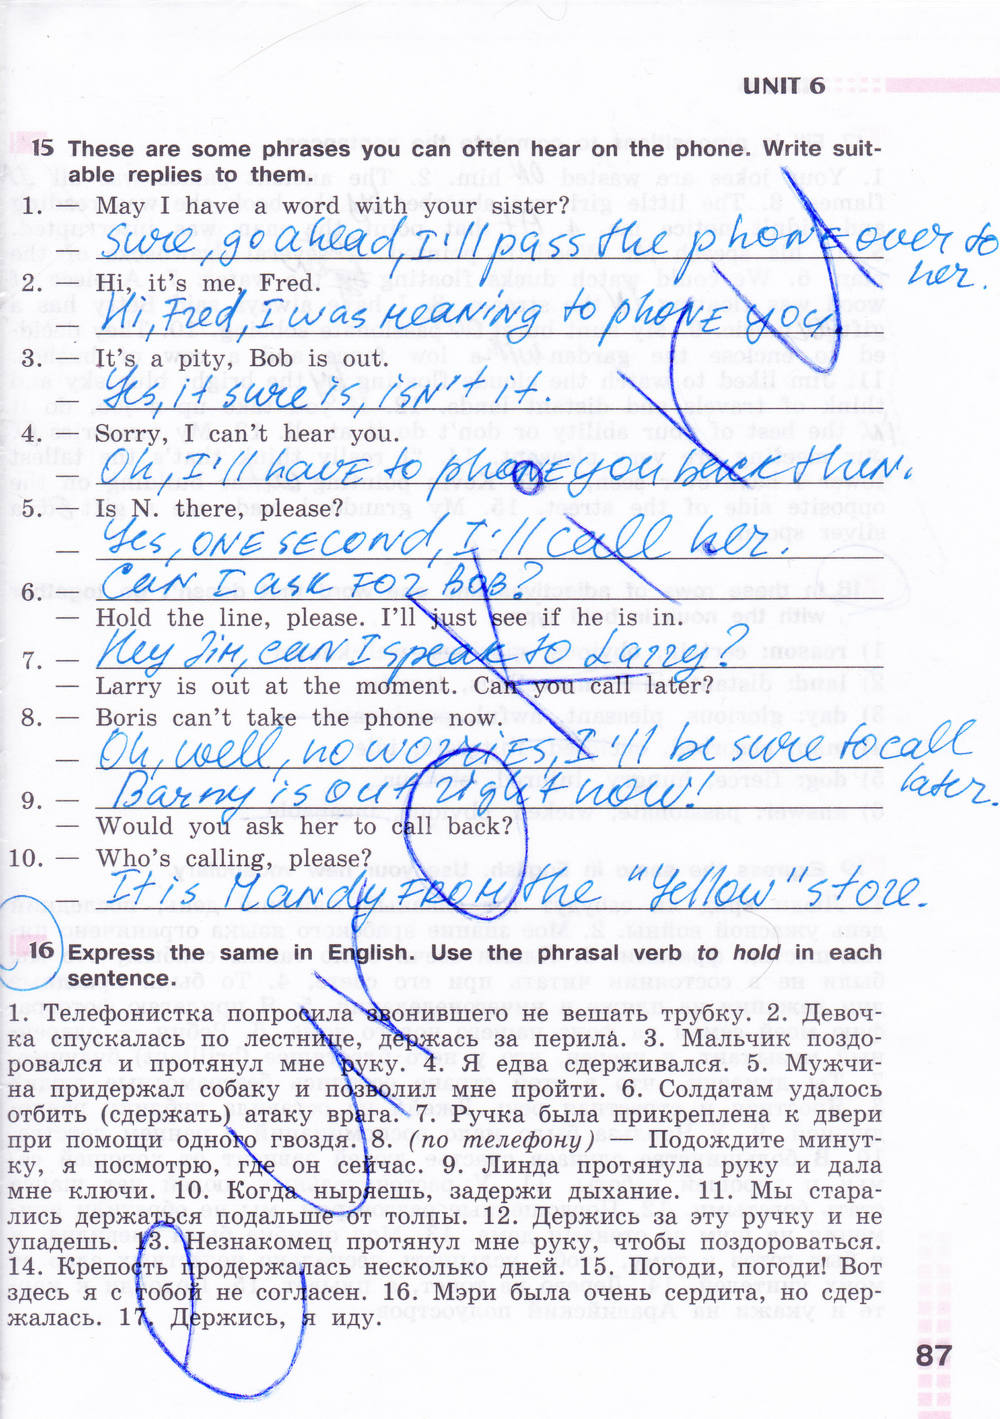 UNIT 6
15 These are some phrases you can often hear on the phone. Write suit-
able replies to them.
1. — May I have a word with your sister?
— Sure, go ahead, I'll pass the phone over to
her.
2. — Hi, it's me, Fred.
— Hi, Fred, I was meaning to phone you.
3. — It's a pity, Bob is out.
— Yes, it sure is, isn't it.
4. — Sorry, I can't hear you.
— Oh, I'll have to phone you back then.
5. — Is N. there, please?
— Yes, one second, I'll call her.
6. — Can I ask for Bob?
— Hold the line, please. I'll just see if he is in.
7. — Hey Jim, can I speak to Larry?
— Larry is out at the moment. Can you call later?
8. — Boris can't take the phone now.
— Oh, well, no worries, I'll be sure to call
later.
9. — Barny is out right now!
— Would you ask her to call back?
10. — Who's calling, please?
It is Mandy from the "Yellow" store.
16 Express the same in English. Use the phrasal verb to hold in each
sentence.
1. Телефонистка попросила звонившего не вешать трубку. 2. Девоч-
ка спускалась по лестнице, держась за перила. 3. Мальчик поздо-
ровался и протянул мне руку. 4. Я едва сдерживался. 5. Мужчи-
на придержал собаку и позволил мне пройти. 6. Солдатам удалось
отбить (сдержать) атаку врага. 7. Ручка была прикреплена к двери
при помощи одного гвоздя. 8. (по телефону) — Подождите минут-
ку, я посмотрю, где он сейчас. 9. Линда протянула руку и дала
мне ключи. 10. Когда ныряешь, задержи дыхание. 11. Мы стара-
лись держаться подальше от толпы. 12. Держись за эту ручку и не
упадешь. 13. Незнакомец протянул мне руку, чтобы поздороваться.
14. Крепость продержалась несколько дней. 15. Погоди, погоди! Вот
здесь я с тобой не согласен. 16. Мэри была очень сердита, но сдер-
жалась. 17. Держись, я иду.
87